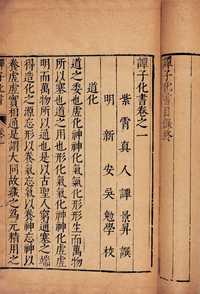 譚子化書目錄終
譚子化書卷之一
紫霄真人譚景昇譔
明新安吳勉學校
道化
道之委也虛化神神化氣氣化形形生而萬物
所以塞也道之用也形化氣氣化神神化虛虛
明而萬物所以通也是以古聖人窮通塞之端
得造化之源忘形以養氣忘氣以養神忘神以
養虛虛實相通是謂大同故藏之為元精用之